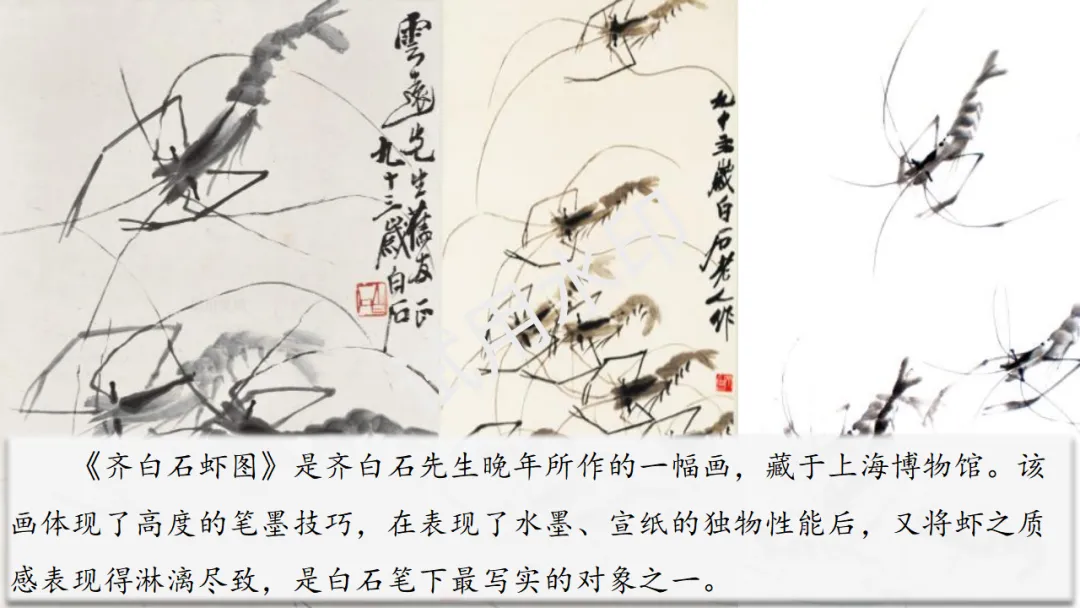 雲遠先生舊友正
九十三歲白石
九十三歲白石老人作
试用水印
《齐白石虾图》是齐白石先生晚年所作的一幅画，藏于上海博物馆。该
画体现了高度的笔墨技巧，在表现了水墨、宣纸的独物性能后，又将虾之质
感表现得淋漓尽致，是白石笔下最写实的对象之一。